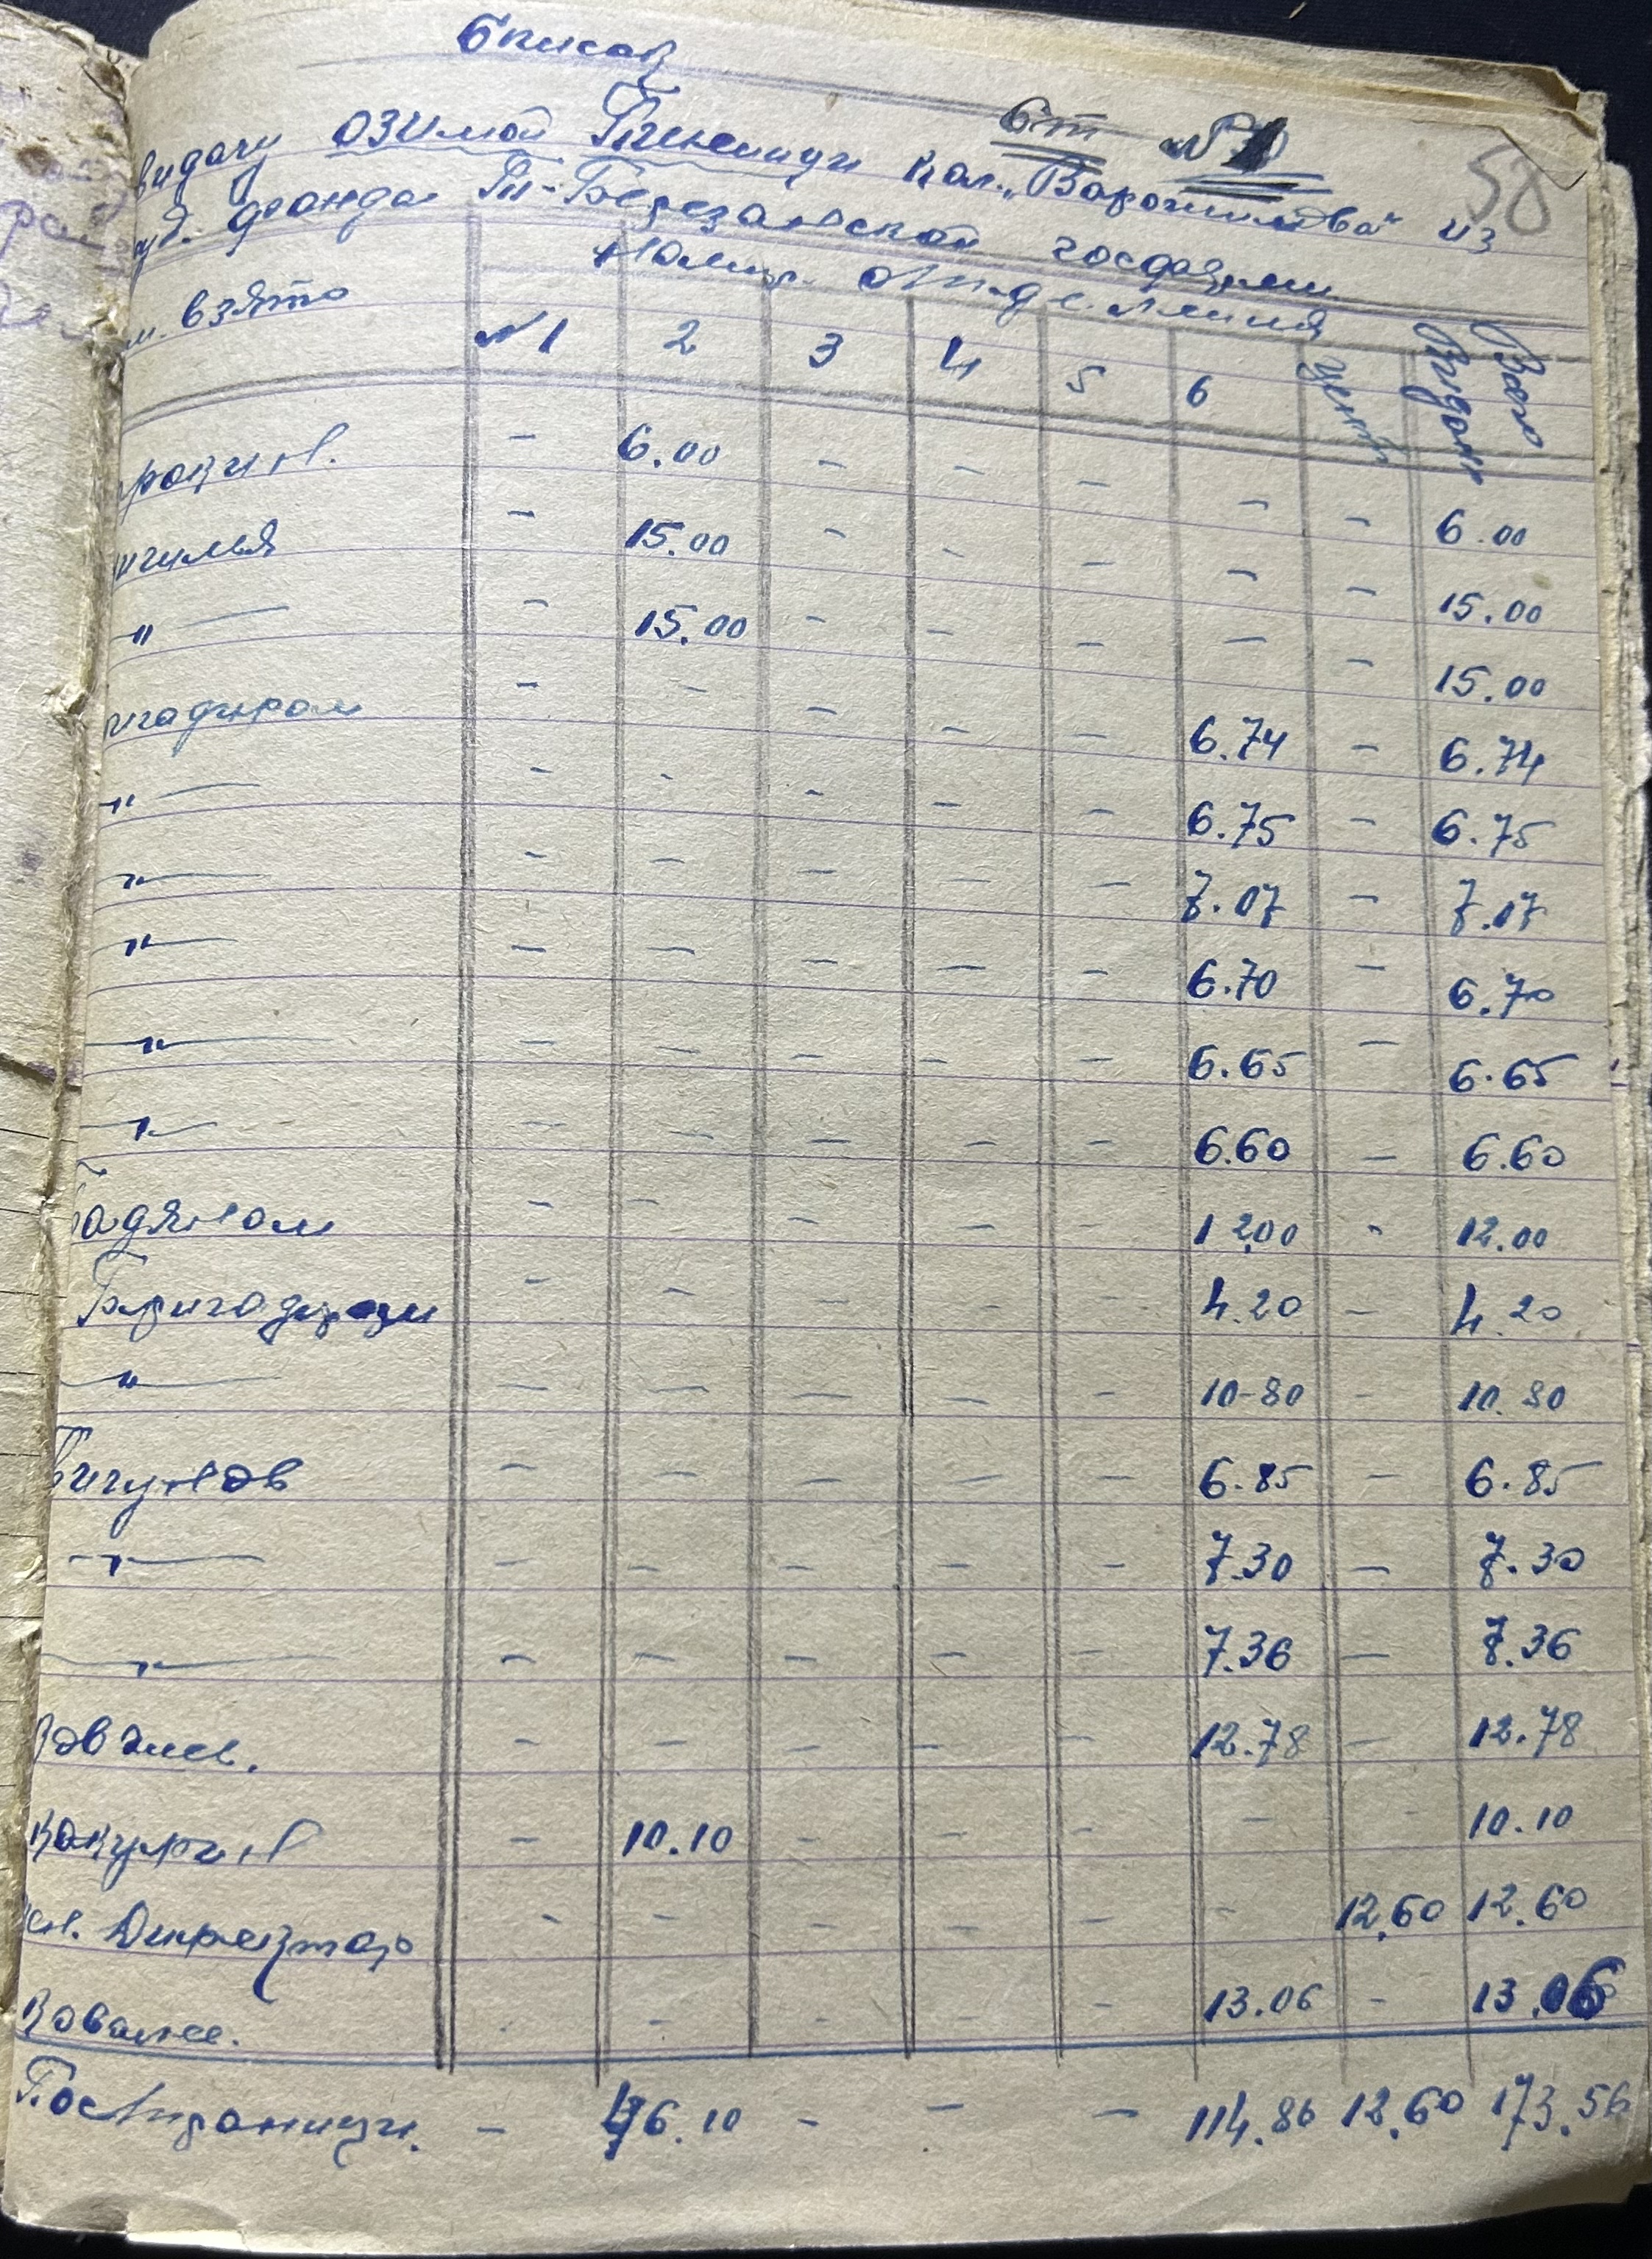 Список
Ст №1
58
видачу озимой Пшеницы кол. „Ворошилова" из
фонда Т-Березанской госфазями
Номер Отделения
взято №1 2 3 4 5 6 центр Видано Всего
- 6.00 - - - - - 6.00
- 15.00 - - - - - 15.00
〃 - 15.00 - - - - - 15.00
игадиром - - - - - 6.74 - 6.74
〃 - - - - - 6.75 - 6.75
〃 - - - - - 7.07 - 7.17
〃 - - - - - 6.70 - 6.70
〃 - - - - - 6.65 - 6.65
〃 - - - - - 6.60 - 6.60
- - - - - 12.00 - 12.00
Бригадиром - - - - - 4.20 - 4.20
〃 - - - - - 10-80 - 10.80
Вигулов - - - - - 6.85 - 6.85
〃 - - - - - 7.30 - 7.30
〃 - - - - - 7.36 - 7.36
- - - - - 12.78 - 12.78
Кокурин - 10.10 - - - - - 10.10
Директор - - - - - - 12.60 12.60
- - - - - 13.06 - 13.06
По странице. - 46.10 - - - 114.86 12.60 173.56